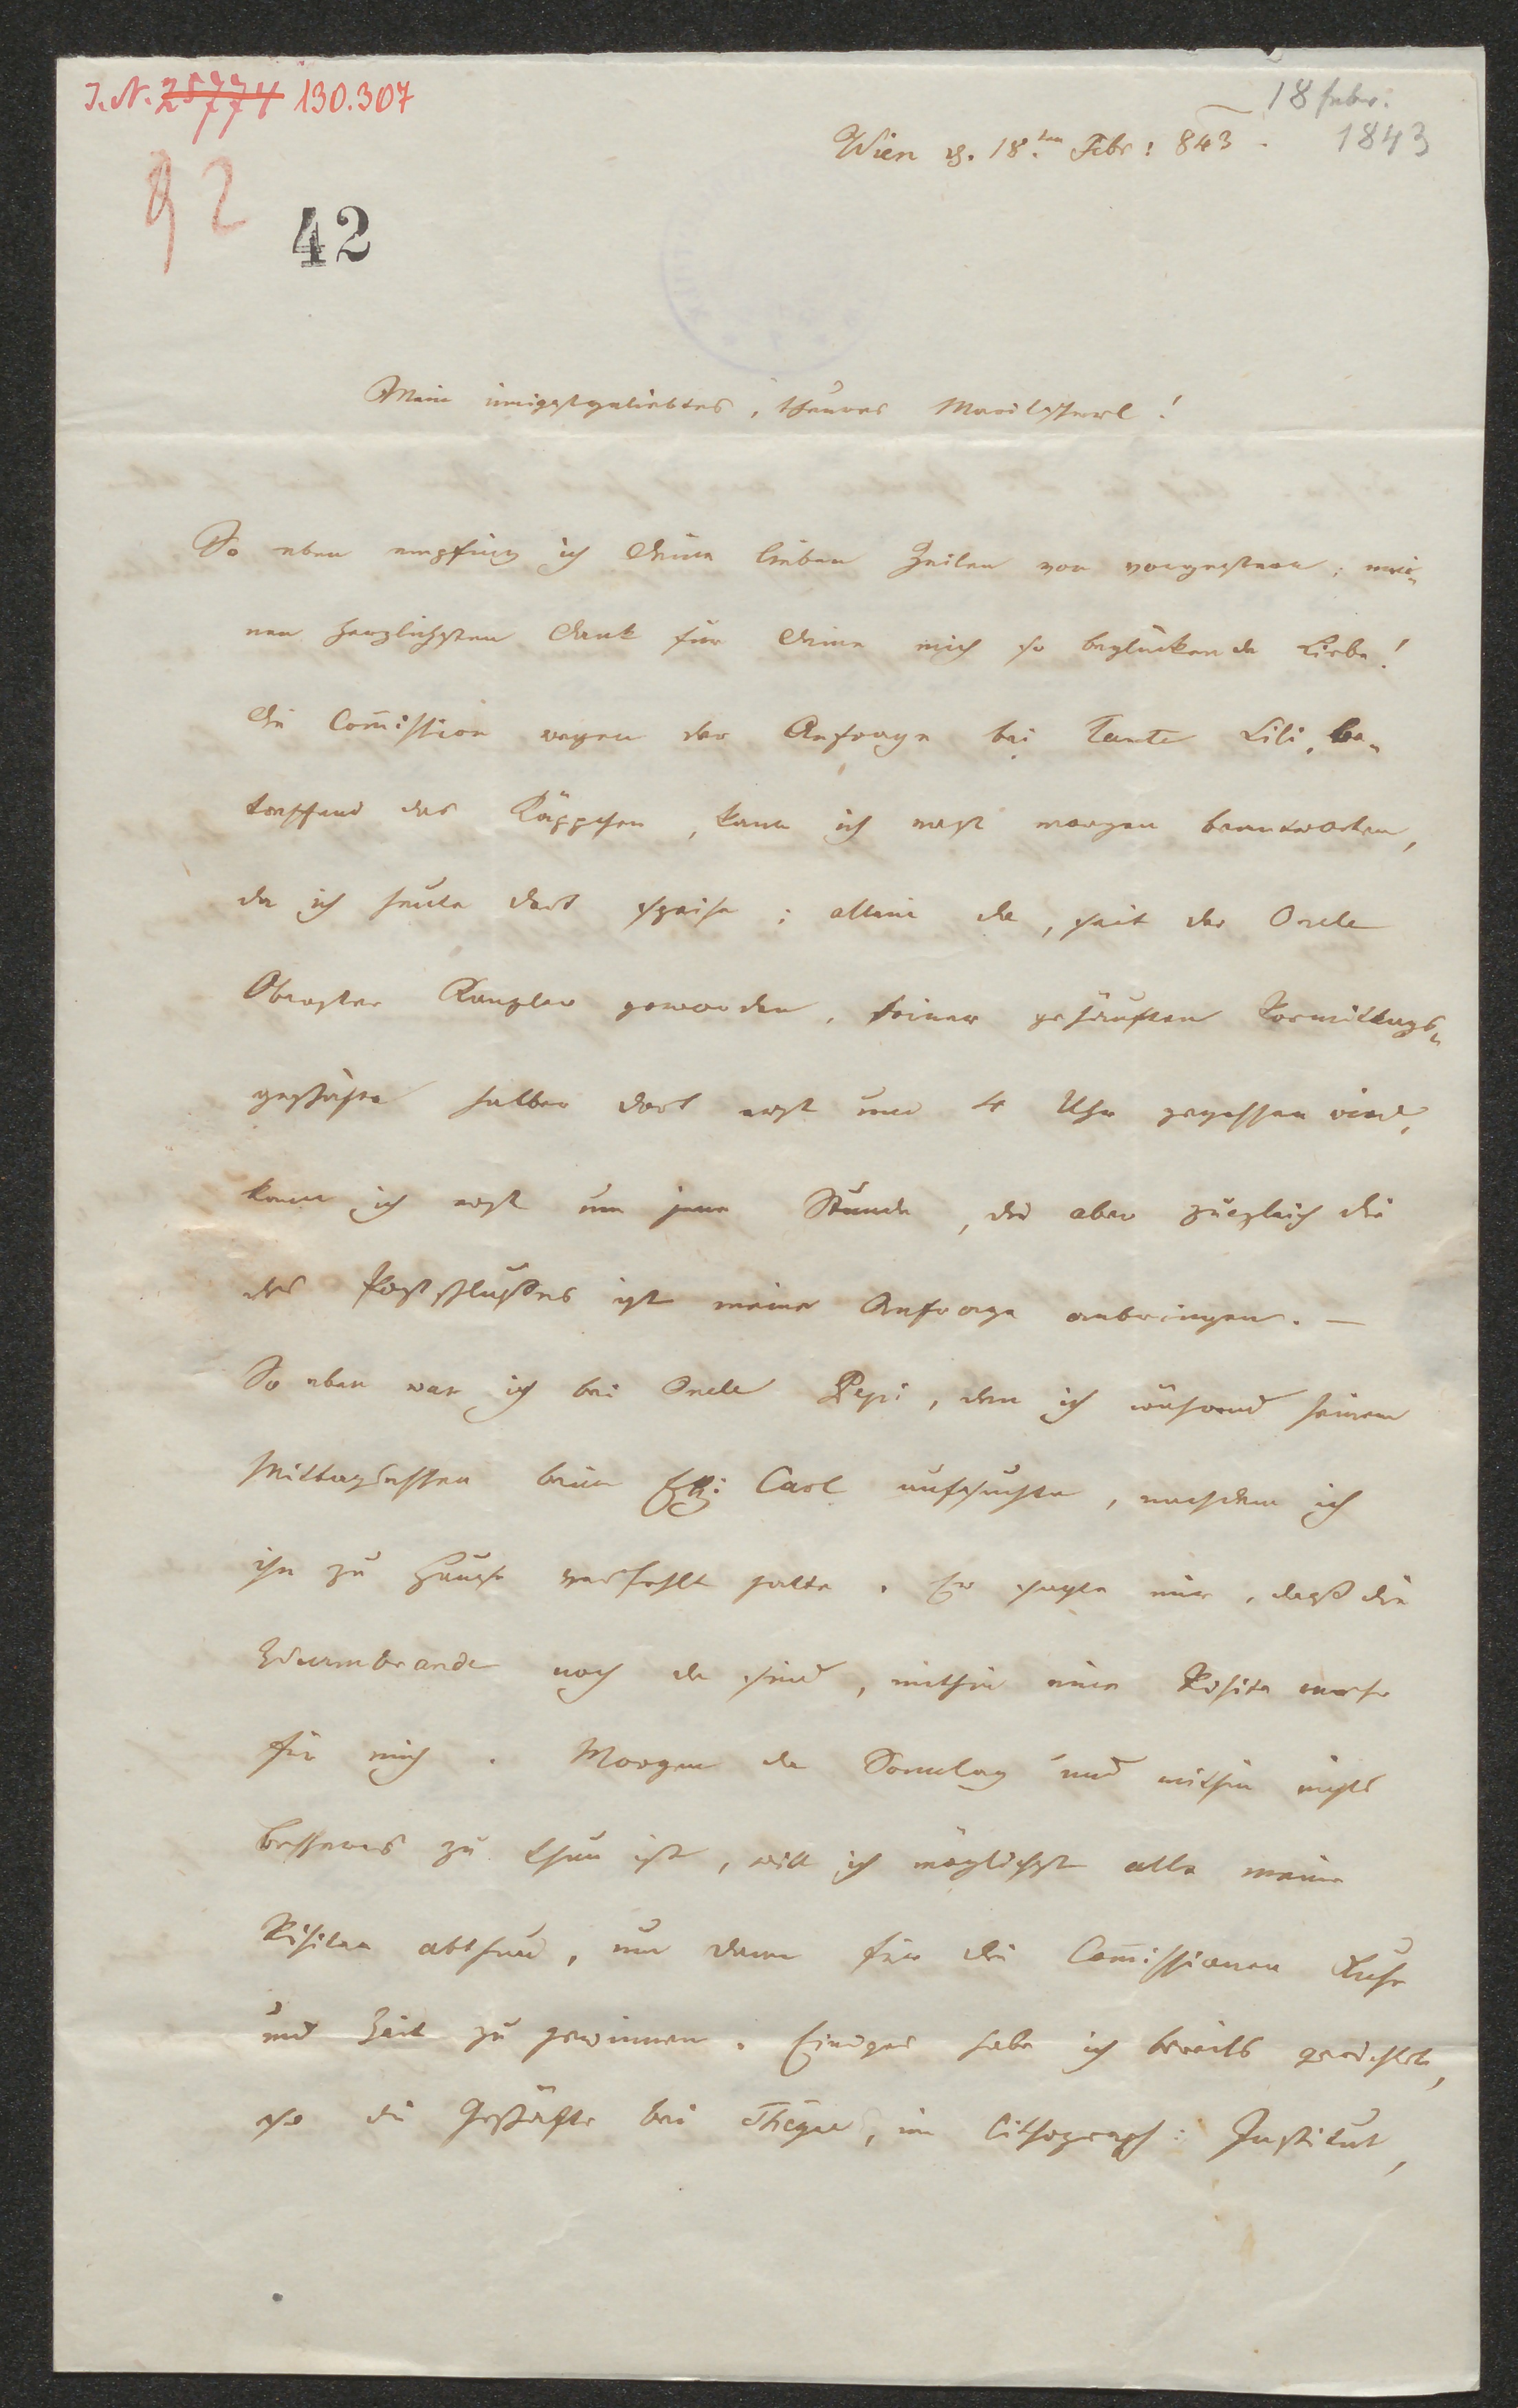 J. N. 25774 130.307
18 febr:
1843
Wien d. 18.ten Febr: 843
92
42
Mein innigstgeliebtes, theures Marilscherl!
So eben empfing ich Deine lieben Zeilen von vorgestern; mei-
nen herzlichsten Dank für Deine mich so beglückende Liebe!
Die Com̄ission wegen der Anfrage bei Tante Lili, be-
treffend das Käppchen, kann ich erst morgen beantworten,
da ich heute dort speise; allein da, seit der Oncle
Oberster Kanzler geworden, seiner gehäuften Vormittags-
geschäfte halber dort erst um 4 Uhr gegessen wird,
kann ich erst um jene Stunde, die aber zugleich die
des Postschlußes ist meine Anfrage anbringen. —
So eben war ich bei Oncle Pepi, den ich während seinem
Mittagessen beim Ezh: Carl aufsuchte, nachdem ich
ihn zu Hause verfehlt hatte. Er sagte mir, daß die
Wurmbrande noch da sind, mithin eine Visite mehr
für mich. Morgen da Sonntag und mithin nichts
besseres zu thun ist, will ich möglichst alle meine
Visiten abthun, um dann für die Com̄issionen Ruhe
und Zeit zu gewinnen. Einiges habe ich bereits gerichtet,
so die Geschäfte bei Thigne, im lithograph: Institut,